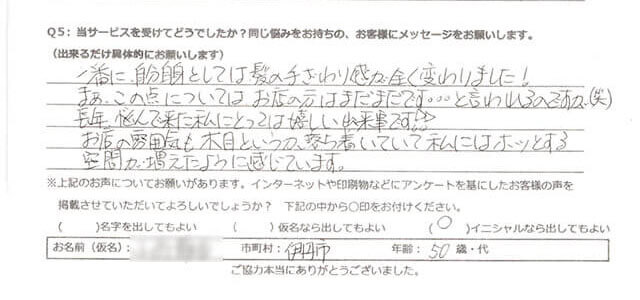 Q5：当サービスを受けてどうでしたか？同じ悩みをお持ちの、お客様にメッセージをお願いします。
（出来るだけ具体的にお願いします）
一番に、自分自身としては髪の手ざわり感が全く変わりました！
まぁ、この点については、お店の方はまだまだです。。。と言われるのですが、(笑)
長年、悩んで来た私にとっては嬉しい出来事です!!
お店の雰囲気も木目というか、落ち着いていて私にはホッとする
空間が増えたように感じています。
※上記のお声についてお願いがあります。インターネットや印刷物などにアンケートを基にしたお客様の声を
掲載させていただいてよろしいでしょうか？ 下記の中から○印をお付けください。
（ ）名字を出してもよい （ ）仮名なら出してもよい （○）イニシャルなら出してもよい
お名前（仮名）： 市町村： 伊丹市 年齢： 50 歳・代
ご協力本当にありがとうございました。